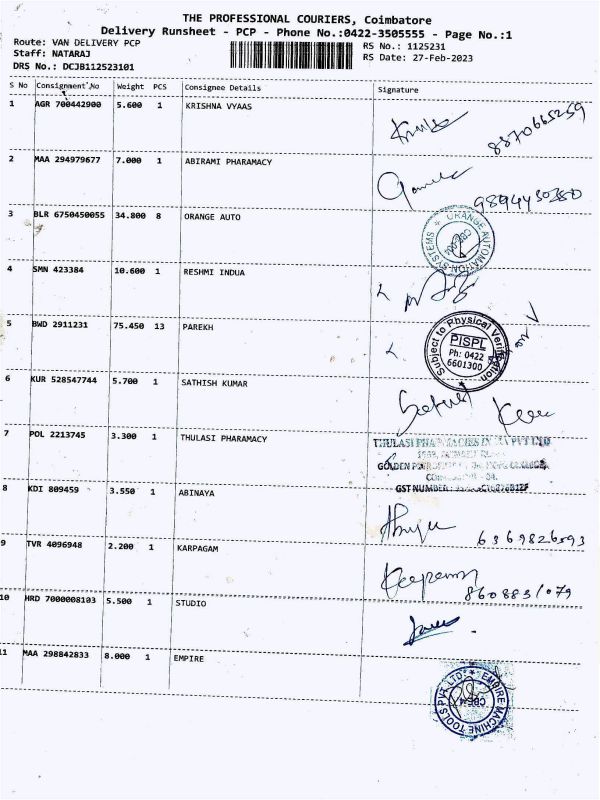 THE PROFESSIONAL COURIERS, Coimbatore
Delivery Runsheet - PCP - Phone No.:0422-3505555 - Page No.:1
Route: VAN DELIVERY PCP
RS No.: 1125231
Staff: NATARAJ
RS Date: 27-Feb-2023
DRS No.: DCJB112523101
S No Consignment No Weight PCS Consignee Details Signature
1 AGR 700442900 5.600 1 KRISHNA VYAAS
8870665259
2 MAA 294979677 7.000 1 ABIRAMI PHARAMACY
9894430380
3 BLR 6750450055 34.800 8 ORANGE AUTO
ORANGE AUTOMATION SYSTEMS
4 SMN 423384 10.600 1 RESHMI INDUA
5 BWD 2911231 75.450 13 PAREKH
Subject to Physical Verification
PISPL
Ph: 0422
6601300
6 KUR 528547744 5.700 1 SATHISH KUMAR
7 POL 2213745 3.300 1 THULASI PHARAMACY
THULASI PHARMACIES INDIA PVT LTD
GST NUMBER :
8 KDI 809459 3.550 1 ABINAYA
6369826593
9 TVR 4096948 2.200 1 KARPAGAM
8608831079
10 HRD 7000008103 5.500 1 STUDIO
11 MAA 298842833 8.000 1 EMPIRE
EMPIRE MACHINE TOOLS PVT. LTD